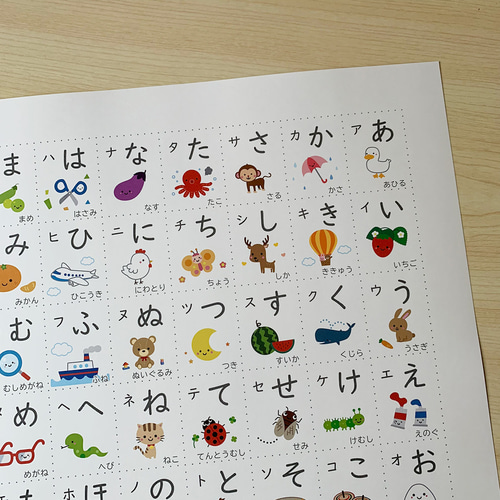 ア あ あひる
カ か かさ
サ さ さる
タ た たこ
ナ な なす
ハ は はさみ
ま まめ
イ い いちご
キ き ききゅう
シ し しか
チ ち ちょう
ニ に にわとり
ヒ ひ ひこうき
み みかん
ウ う うさぎ
ク く くじら
ス す すいか
ツ つ つき
ヌ ぬ ぬいぐるみ
フ ふ ふね
む むしめがね
エ え えのぐ
ケ け けむし
セ せ せみ
テ て てんとうむし
ネ ね ねこ
ヘ へ へび
め めがね
オ お
コ こ
ソ そ
ト と
ノ の
ホ ほ